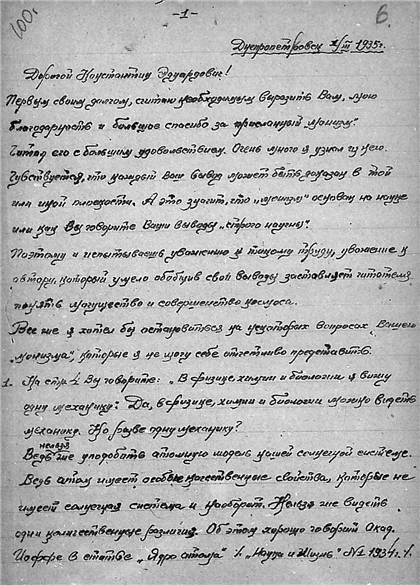 100.
-1-
6.
Днепропетровск 2/III 1935г.
Дорогой Константин Эдуардович!
Первым своим долгом, считаю необходимым выразить Вам, мою
благодарность и большое спасибо за присланный монизм".
Читал его с большим удовольствием. Очень много я узнал из него.
Чувствуется, что каждый Ваш вывод может быть доказан в той
или иной плоскости. А это значит, что "монизм" основан на науке
или как Вы говорите Ваши выводы "строго научны".
Поэтому и испытываешь уважение к такому труду, уважение к
автору, который умело обобщив свои выводы заставляет читателя
понять могущество и совершенство космоса.
Все же я хотел бы остановиться на некоторых вопросах Вашего
"монизма", которые я не могу себе отчетливо представить.
1. На стр. 4 Вы говорите: "В физике, химии и биологии я вижу
одну механику". Да, в физике, химии и биологии можно видеть
механику. Но разве одну механику?
нельзя
Ведь же уподобить атомную модель нашей солнечной системе.
Ведь атом имеет особые качественные свойства, которые не
имеет солнечная система и наоборот. Нельзя же видеть
одни количественные различия. Об этом хорошо говорит Акад.
Иоффе в статье "Ядро атома" "Наука и Жизнь" №1 1934 г.